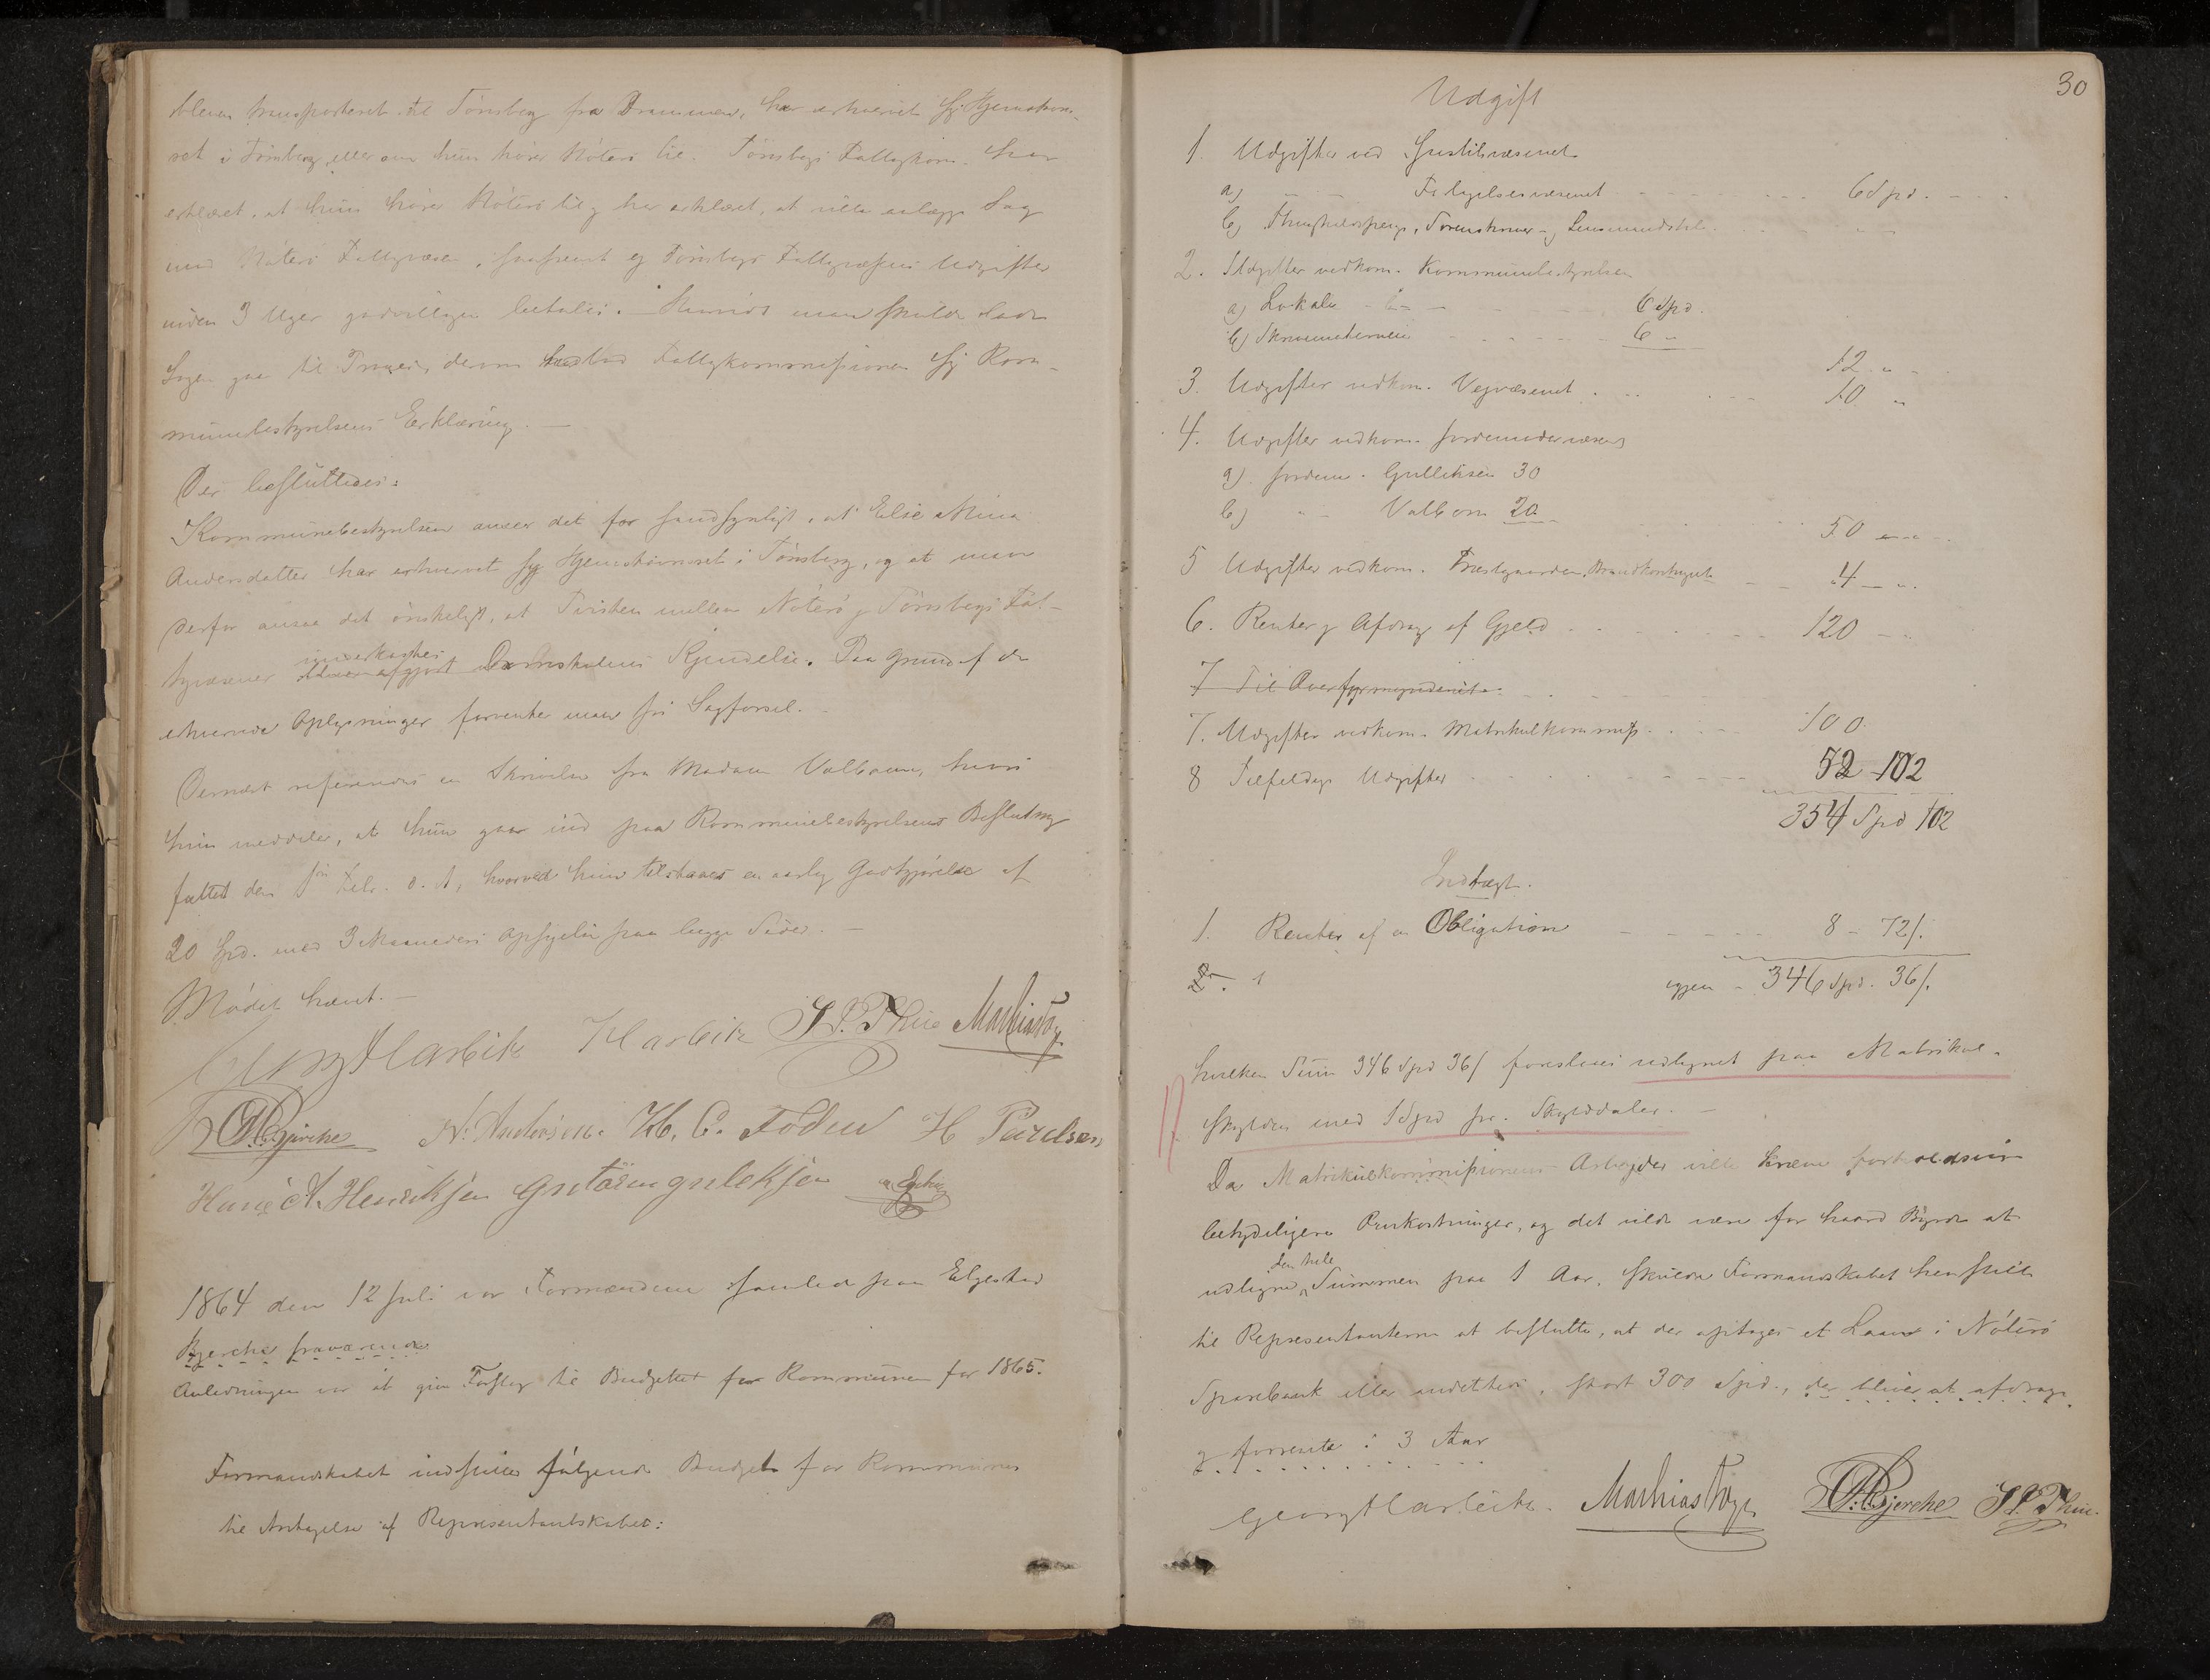 bleven transporteret til Tönsberg fra Drammen, har erhvervet sig Hjemstavns-
ret i Tönsberg, eller om hun hörer Nöterö til. Tönsbergs Fattigkom. har
erklæret, at hun hörer Nöterö til og har erklæret, at ville anlægge Sag
mod Nöterö Fattigvæsen, saafremt ej Tönsbergs Fattigvæsens Udgifter
inden 3 Uger godvilligen betales. Hvorvidt man skulde lade
Sagen gaa til Proces, derom udbad Fattigkommissionen sig Kom-
munebestyrelsens Erklæring. —
Der besluttedes:
Kommunebestyrelsen anseer det for sandsynligt, at Else Mina
Andersdatter har erhvervet sig Hjemstavnsret i Tönsberg, og at man
derfor ansaa det önskeligt, at Tvisten mellem Nöterö og Tönsbergs Fat-
tigvæsener underkastes Domstolens Kjendelse. Paa Grund af de
erhvervede Oplysninger forventer man fri Sagförsel.
Dernæst refereredes en Skrivelse fra Madam Valbom, hvori
hun meddeler, at hun gaar ind paa Kommunebestyrelsens Beslutning
fattet den Febr. d. A, hvorved hun tilstaaes en aarlig Godtgjörelse af
20 Spd. med 3 Maaneders Opsigelse paa begge Sider. —
Mödet hævet. —
Georg Harbitz Harbitz S. P. Thue Mathias Foyn
O. Bjerche N. Andersen. H. C. Foden H Paulsen
Hans A. Henriksen Gulbrand Guleksen
1864 den 12 Juli var Formændene samlede paa Elgestad
Bjerche fraværende
Anledningen var at give Forslag til Budgettet for Kommunen for 1865.
Formandskabet indstiller fölgende Budget for Kommunen
til Antagelse af Repræsentantskabet:
30
Udgift
1. Udgifter ved Justitsvæsenet
a) — — Fölgelsesvæsenet 6 Spd.
b) Thingholdspenge, Sorenskriver- og Lensmandstold
2. Udgifter vedkom. Kommunebestyrelsen
a) Lokale 6 Spd.
b) Skrivematerialier 6 "
12 " -
3. Udgifter vedkom. Vejvæsenet 10 "
4. Udgifter vedkom. Jordemodervæsenet
a) Jordem. Gulliksen 30
b) " Valbom 20
50
5 Udgifter vedkom. Præstegaarden, Brandkontingent 4 — "
6. Renter og Afdrag af Gjeld 120 -
7 Til Overformynderiet
7. Udgifter vedkom. Matrikulkommiss. 100
8 Tilfeldige Udgifter 52 102
354 Spd 102
Indtægt.
1. Renter af en Obligation 8 - 72 /.
2. 1
igjen - 346 Spd. 36 /.
hvilken Sum 346 Spd 36 / foreslaaes udlignet paa Matrikul-
skylden med 1 Spd pr. Skylddaler. —
Da Matrikulkommissionens Arbejder ville kræve forholdsvis
betydeligere Omkostninger, og det vilde være for haard Byrde at
udligne den hele Summen paa 1 Aar, skulde Formandskabet henstille
til Repræsentanterne at beslutte, at der optages et Laan i Nöterö
Sparebank eller andetsteds, stort 300 Spd., der bliver at afdrage
og forrente i 3 Aar
Georg Harbitz. Mathias Foyn O. Bjerche S. P. Thue.